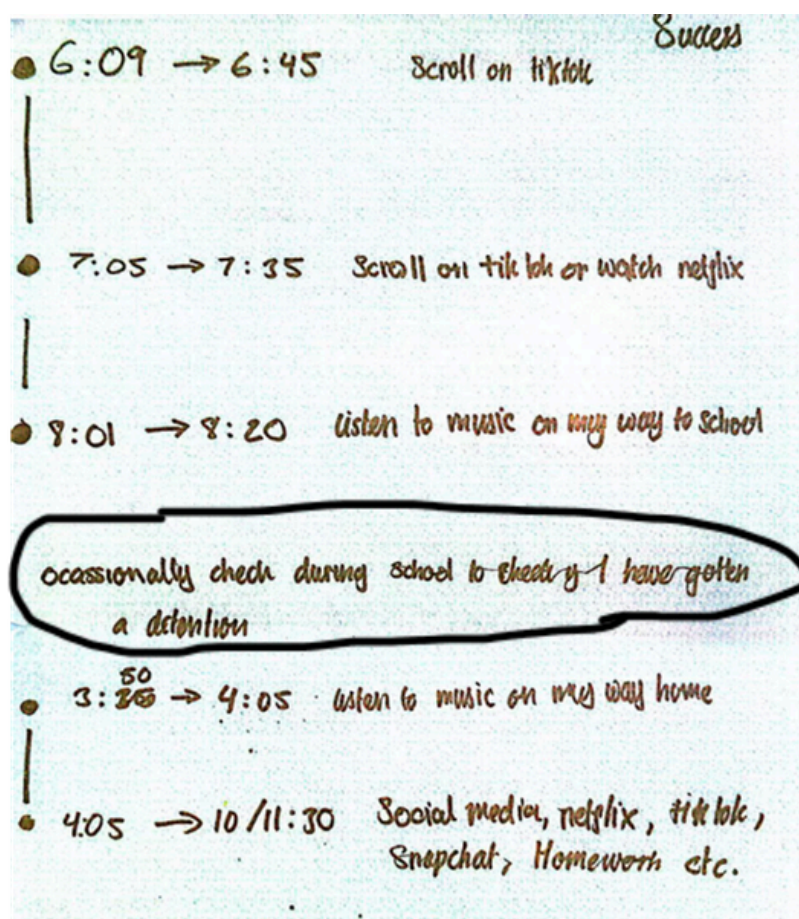 Success
6:09 → 6:45 Scroll on tiktok
7:05 → 7:35 Scroll on tik tok or watch netflix
8:01 → 8:20 Listen to music on my way to school
ocassionally check during school to check if I have gotten
a detention
3:50 → 4:05 Listen to music on my way home
4:05 → 10/11:30 Social media, netflix, tik tok,
Snapchat, Homework etc.